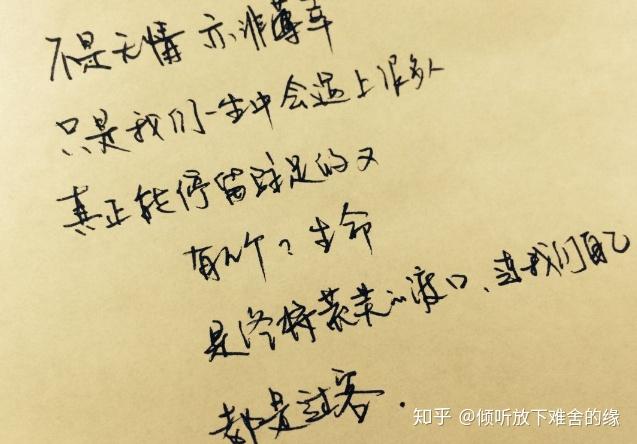 不是无情 亦非薄幸
只是我们一生中会遇上很多人
真正能停留驻足的又
有几个？生命
是终将荒芜的渡口、连我们自己
都是过客.
知乎 @倾听放下难舍的缘